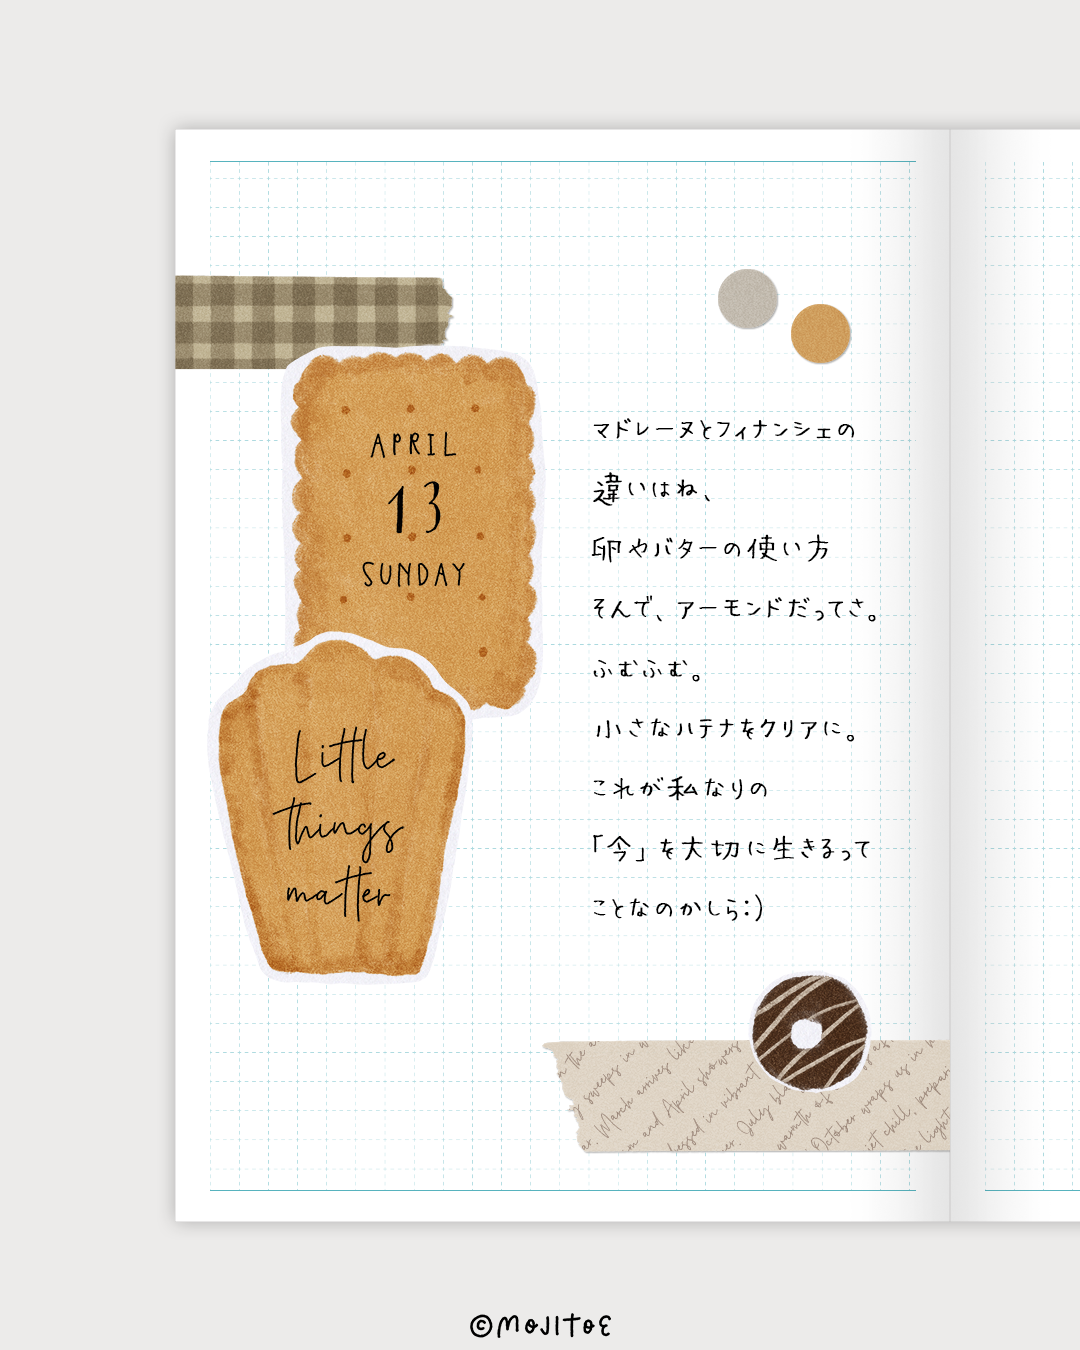 APRIL
13
SUNDAY
Little
things
matter
マドレーヌとフィナンシェの
違いはね、
卵やバターの使い方
そんで、アーモンドだってさ。
ふむふむ。
小さなハテナをクリアに。
これが私なりの
「今」を大切に生きるって
ことなのかしら:)
sweeps in
March arrives like
and April showers
in vibrant
July
warmth of
October wraps as in
chill, prepari
light
©MOJITOE